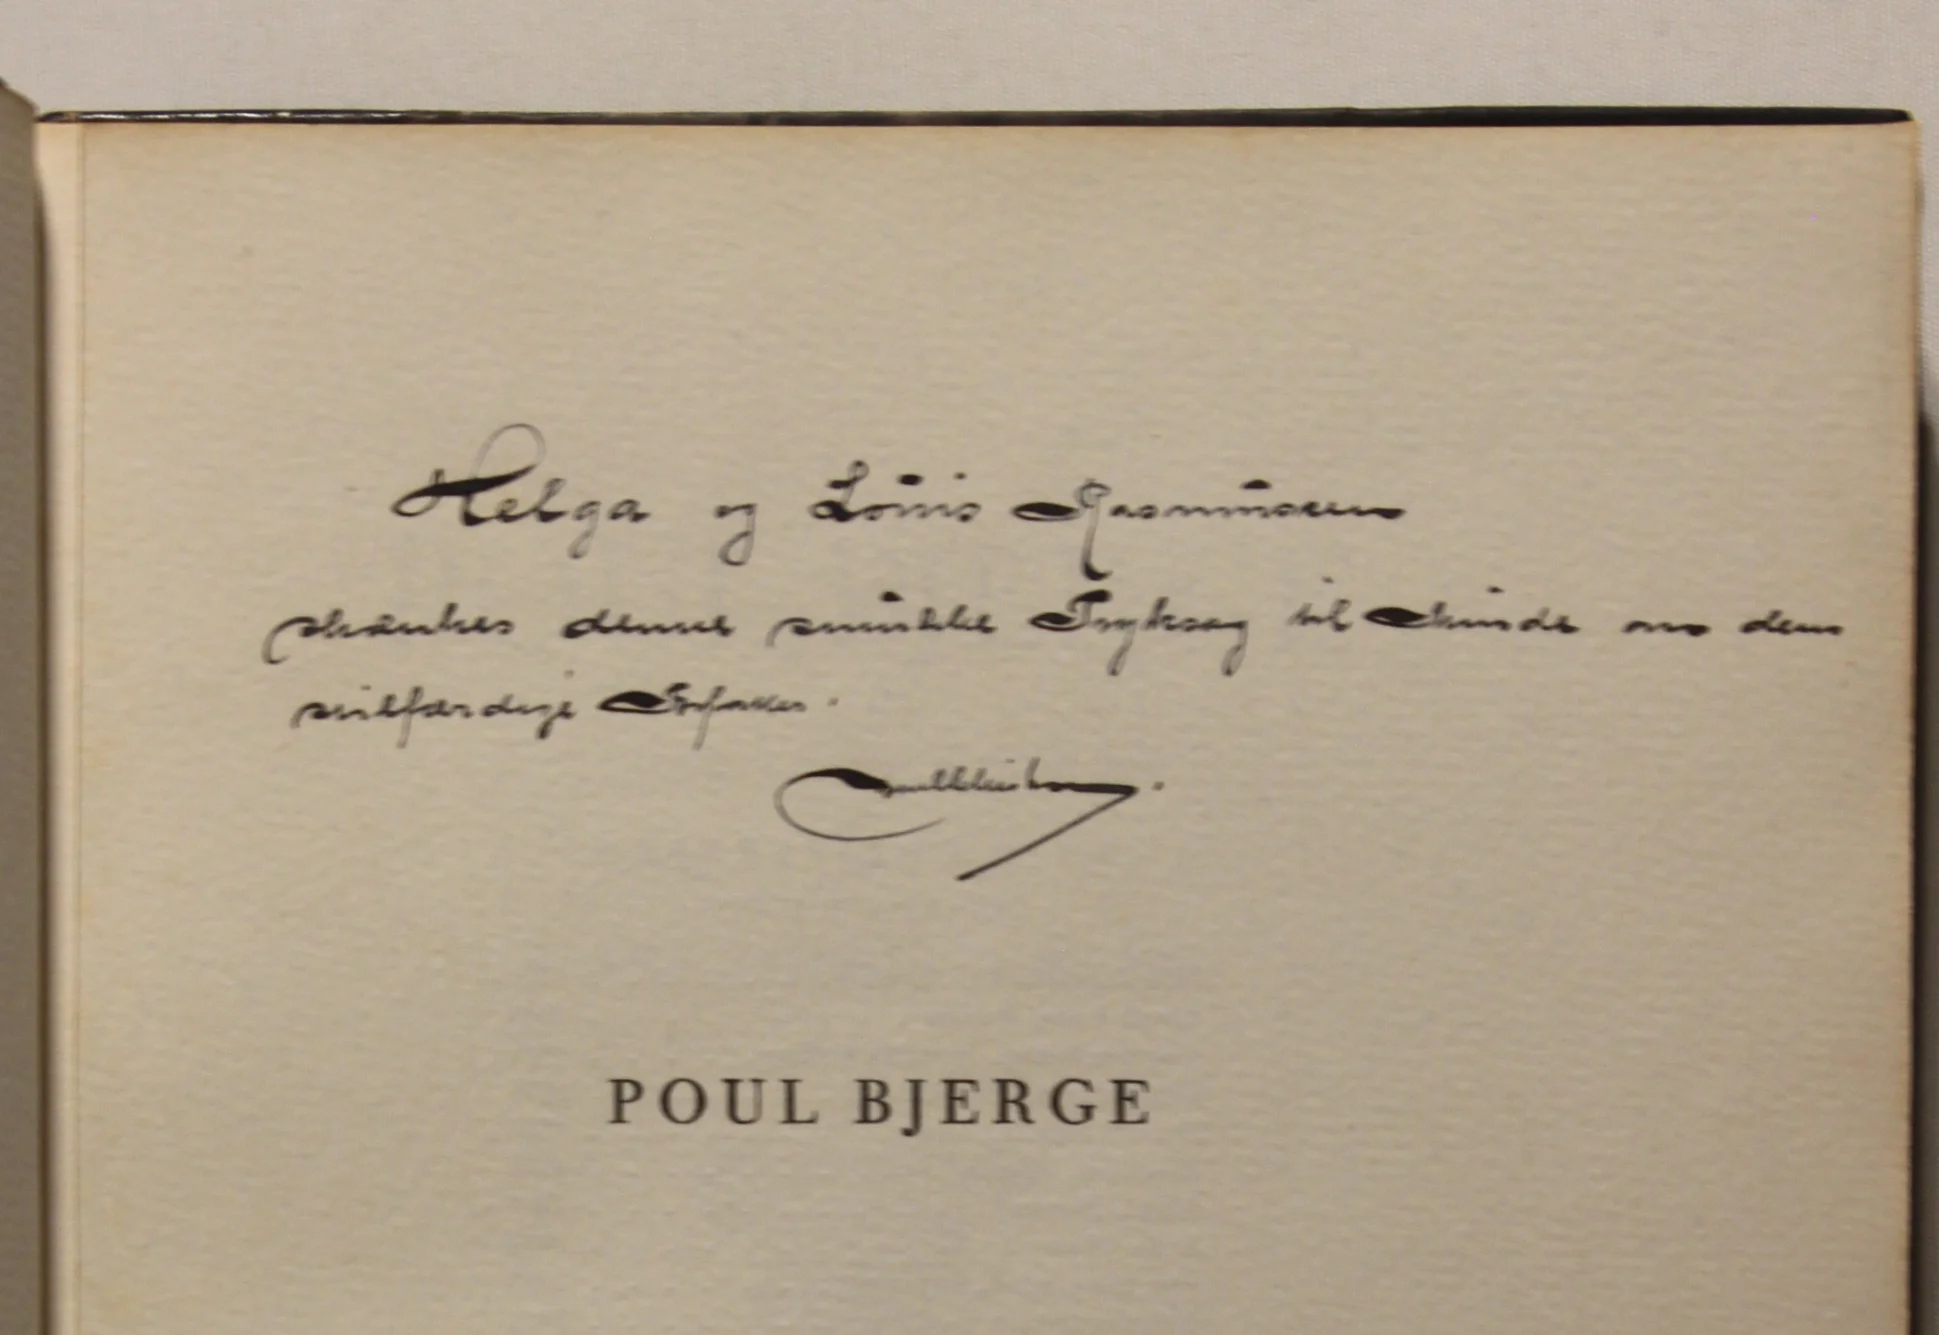 Helga og Louis Rasmussen
skænkes denne smukke Tryksag til Minde om dem
Forfatter.
POUL BJERGE